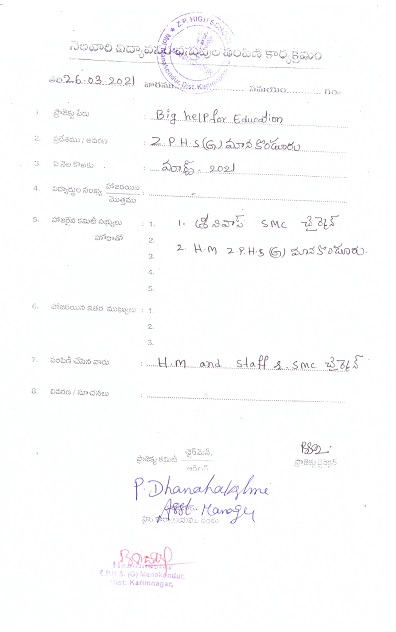 Z.P. HIGH SCHOOL
Dist. Karimnagar
నెలవారి విద్యా కార్యక్రమం
తేది 26.03.2021 వారము సమయం గం.
1. ప్రాజెక్టు పేరు : Big help for Education
2. ప్రదేశము / ఆవరణ : Z.P.H.S (G) మానకొండూరు
3. ఏ నెల కొరకు : మార్చి - 2021
4. విద్యార్థుల సంఖ్య హాజరయిన / మొత్తము :
5. హాజరైన కమిటీ సభ్యులు : 1. 1. శ్రీనివాస్ SMC చైర్మెన్
హోదాతో 2. 2. H.M Z.P.H.S (G) మానకొండూరు.
3.
4.
5.
6. హాజరయిన ఇతర ముఖ్యులు : 1.
2.
3.
7. పంపిణి చేసిన వారు : H.M and Staff & SMC చైర్మెన్
8. వివరణ / సూచనలు :
ప్రాజెక్టు కమిటి చైర్‌మెన్,
ప్రాజెక్టు డైరెక్టర్
P. Dhanahalaxmi
Asst. Manager
Z.P.H.S. (G) Manakondur,
Dist: Karimnagar.